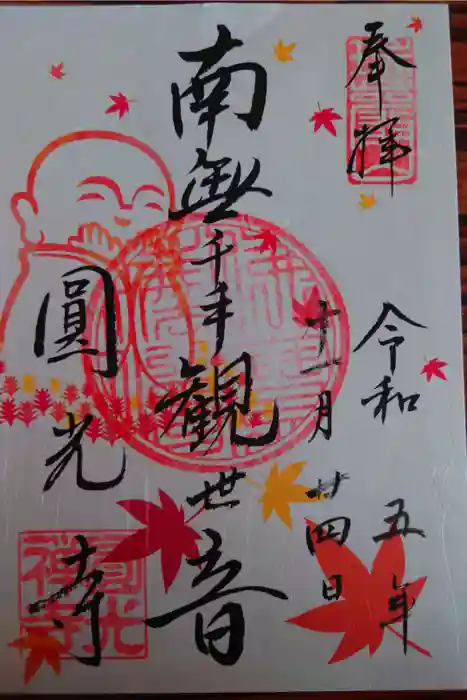 奉拝
令和五年
十一月廿四日
南無千手観世音
圓光寺